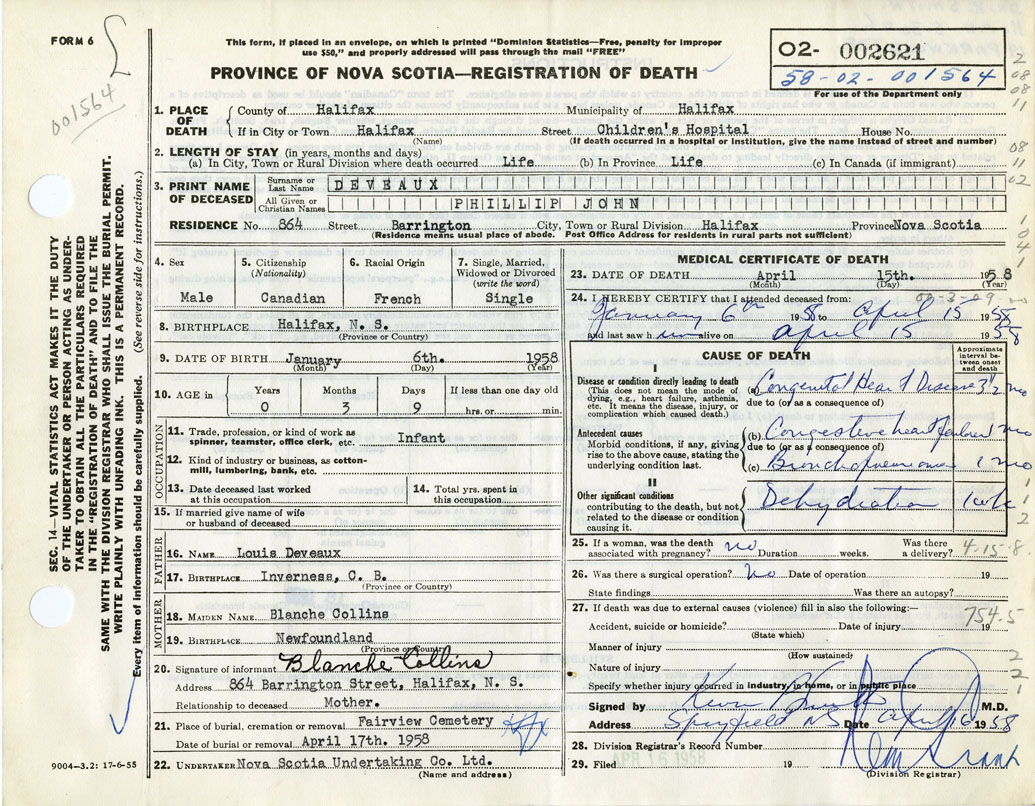 FORM 6
This form, if placed in an envelope, on which is printed "Dominion Statistics—Free, penalty for improper
use $50," and properly addressed will pass through the mail "FREE"
PROVINCE OF NOVA SCOTIA—REGISTRATION OF DEATH
O2- 002621
58-02-001564
For use of the Department only
001564
1. PLACE OF DEATH
County of Halifax Municipality of Halifax
If in City or Town Halifax Street Children's Hospital House No.
(Name) (If death occurred in a hospital or institution, give the name instead of street and number)
2. LENGTH OF STAY (in years, months and days)
(a) In City, Town or Rural Division where death occurred Life (b) In Province Life (c) In Canada (if immigrant)
3. PRINT NAME OF DECEASED
Surname or Last Name DEVEAUX
All Given or Christian Names PHILLIP JOHN
RESIDENCE No. 864 Street Barrington City, Town or Rural Division Halifax Province Nova Scotia
(Residence means usual place of abode. Post Office Address for residents in rural parts not sufficient)
SEC. 14—VITAL STATISTICS ACT MAKES IT THE DUTY
OF THE UNDERTAKER OR PERSON ACTING AS UNDER-
TAKER TO OBTAIN ALL THE PARTICULARS REQUIRED
IN THE "REGISTRATION OF DEATH" AND TO FILE THE
SAME WITH THE DIVISION REGISTRAR WHO SHALL ISSUE THE BURIAL PERMIT.
WRITE PLAINLY WITH UNFADING INK. THIS IS A PERMANENT RECORD.
Every item of information should be carefully supplied. (See reverse side for instructions.)
4. Sex
Male
5. Citizenship
(Nationality)
Canadian
6. Racial Origin
French
7. Single, Married,
Widowed or Divorced
(write the word)
Single
8. BIRTHPLACE Halifax, N. S.
(Province or Country)
9. DATE OF BIRTH January 6th. 1958
(Month) (Day) (Year)
10. AGE in
Years Months Days If less than one day old
0 3 9 hrs. or min.
OCCUPATION
11. Trade, profession, or kind of work as
spinner, teamster, office clerk, etc. Infant
12. Kind of industry or business, as cotton-
mill, lumbering, bank, etc.
13. Date deceased last worked
at this occupation
14. Total yrs. spent in
this occupation
15. If married give name of wife
or husband of deceased
FATHER
16. NAME Louis Deveaux
17. BIRTHPLACE Inverness, C. B.
(Province or Country)
MOTHER
18. MAIDEN NAME Blanche Collins
19. BIRTHPLACE Newfoundland
(Province or Country)
20. Signature of informant Blanche Collins
Address 864 Barrington Street, Halifax, N. S.
Relationship to deceased Mother.
21. Place of burial, cremation or removal Fairview Cemetery
Date of burial or removal April 17th. 1958
22. UNDERTAKER Nova Scotia Undertaking Co. Ltd.
(Name and address)
9004—3.2: 17-6-55
MEDICAL CERTIFICATE OF DEATH
23. DATE OF DEATH April 15th. 1958
(Month) (Day) (Year)
24. I HEREBY CERTIFY that I attended deceased from:
00-3-09
January 6th 1958 to April 15 1958
and last saw him alive on April 15 1958
CAUSE OF DEATH
Approximate
interval be-
tween onset
and death
I
Disease or condition directly leading to death
(This does not mean the mode of
dying, e.g., heart failure, asthenia,
etc. It means the disease, injury, or
complication which caused death.)
(a) Congenital Heart Disease 3½ mo
due to (or as a consequence of)
Antecedent causes
Morbid conditions, if any, giving
rise to the above cause, stating the
underlying condition last.
(b) Congestive heart failure 1 mo
due to (or as a consequence of)
(c) Bronchopneumonia 1 mo
II
Other significant conditions
contributing to the death, but not
related to the disease or condition
causing it.
Dehydration 1 wk
25. If a woman, was the death
associated with pregnancy? no Duration weeks. Was there
a delivery?
4-15-8
26. Was there a surgical operation? No Date of operation 19
State findings Was there an autopsy?
27. If death was due to external causes (violence) fill in also the following:—
754.5
Accident, suicide or homicide? Date of injury 19
(State which)
Manner of injury
(How sustained)
Nature of injury
Specify whether injury occurred in industry, in home, or in public place
Signed by M.D.
Address Spryfield NS Date April 16 1958
28. Division Registrar's Record Number
29. Filed APR 16 1958 19
(Division Registrar)